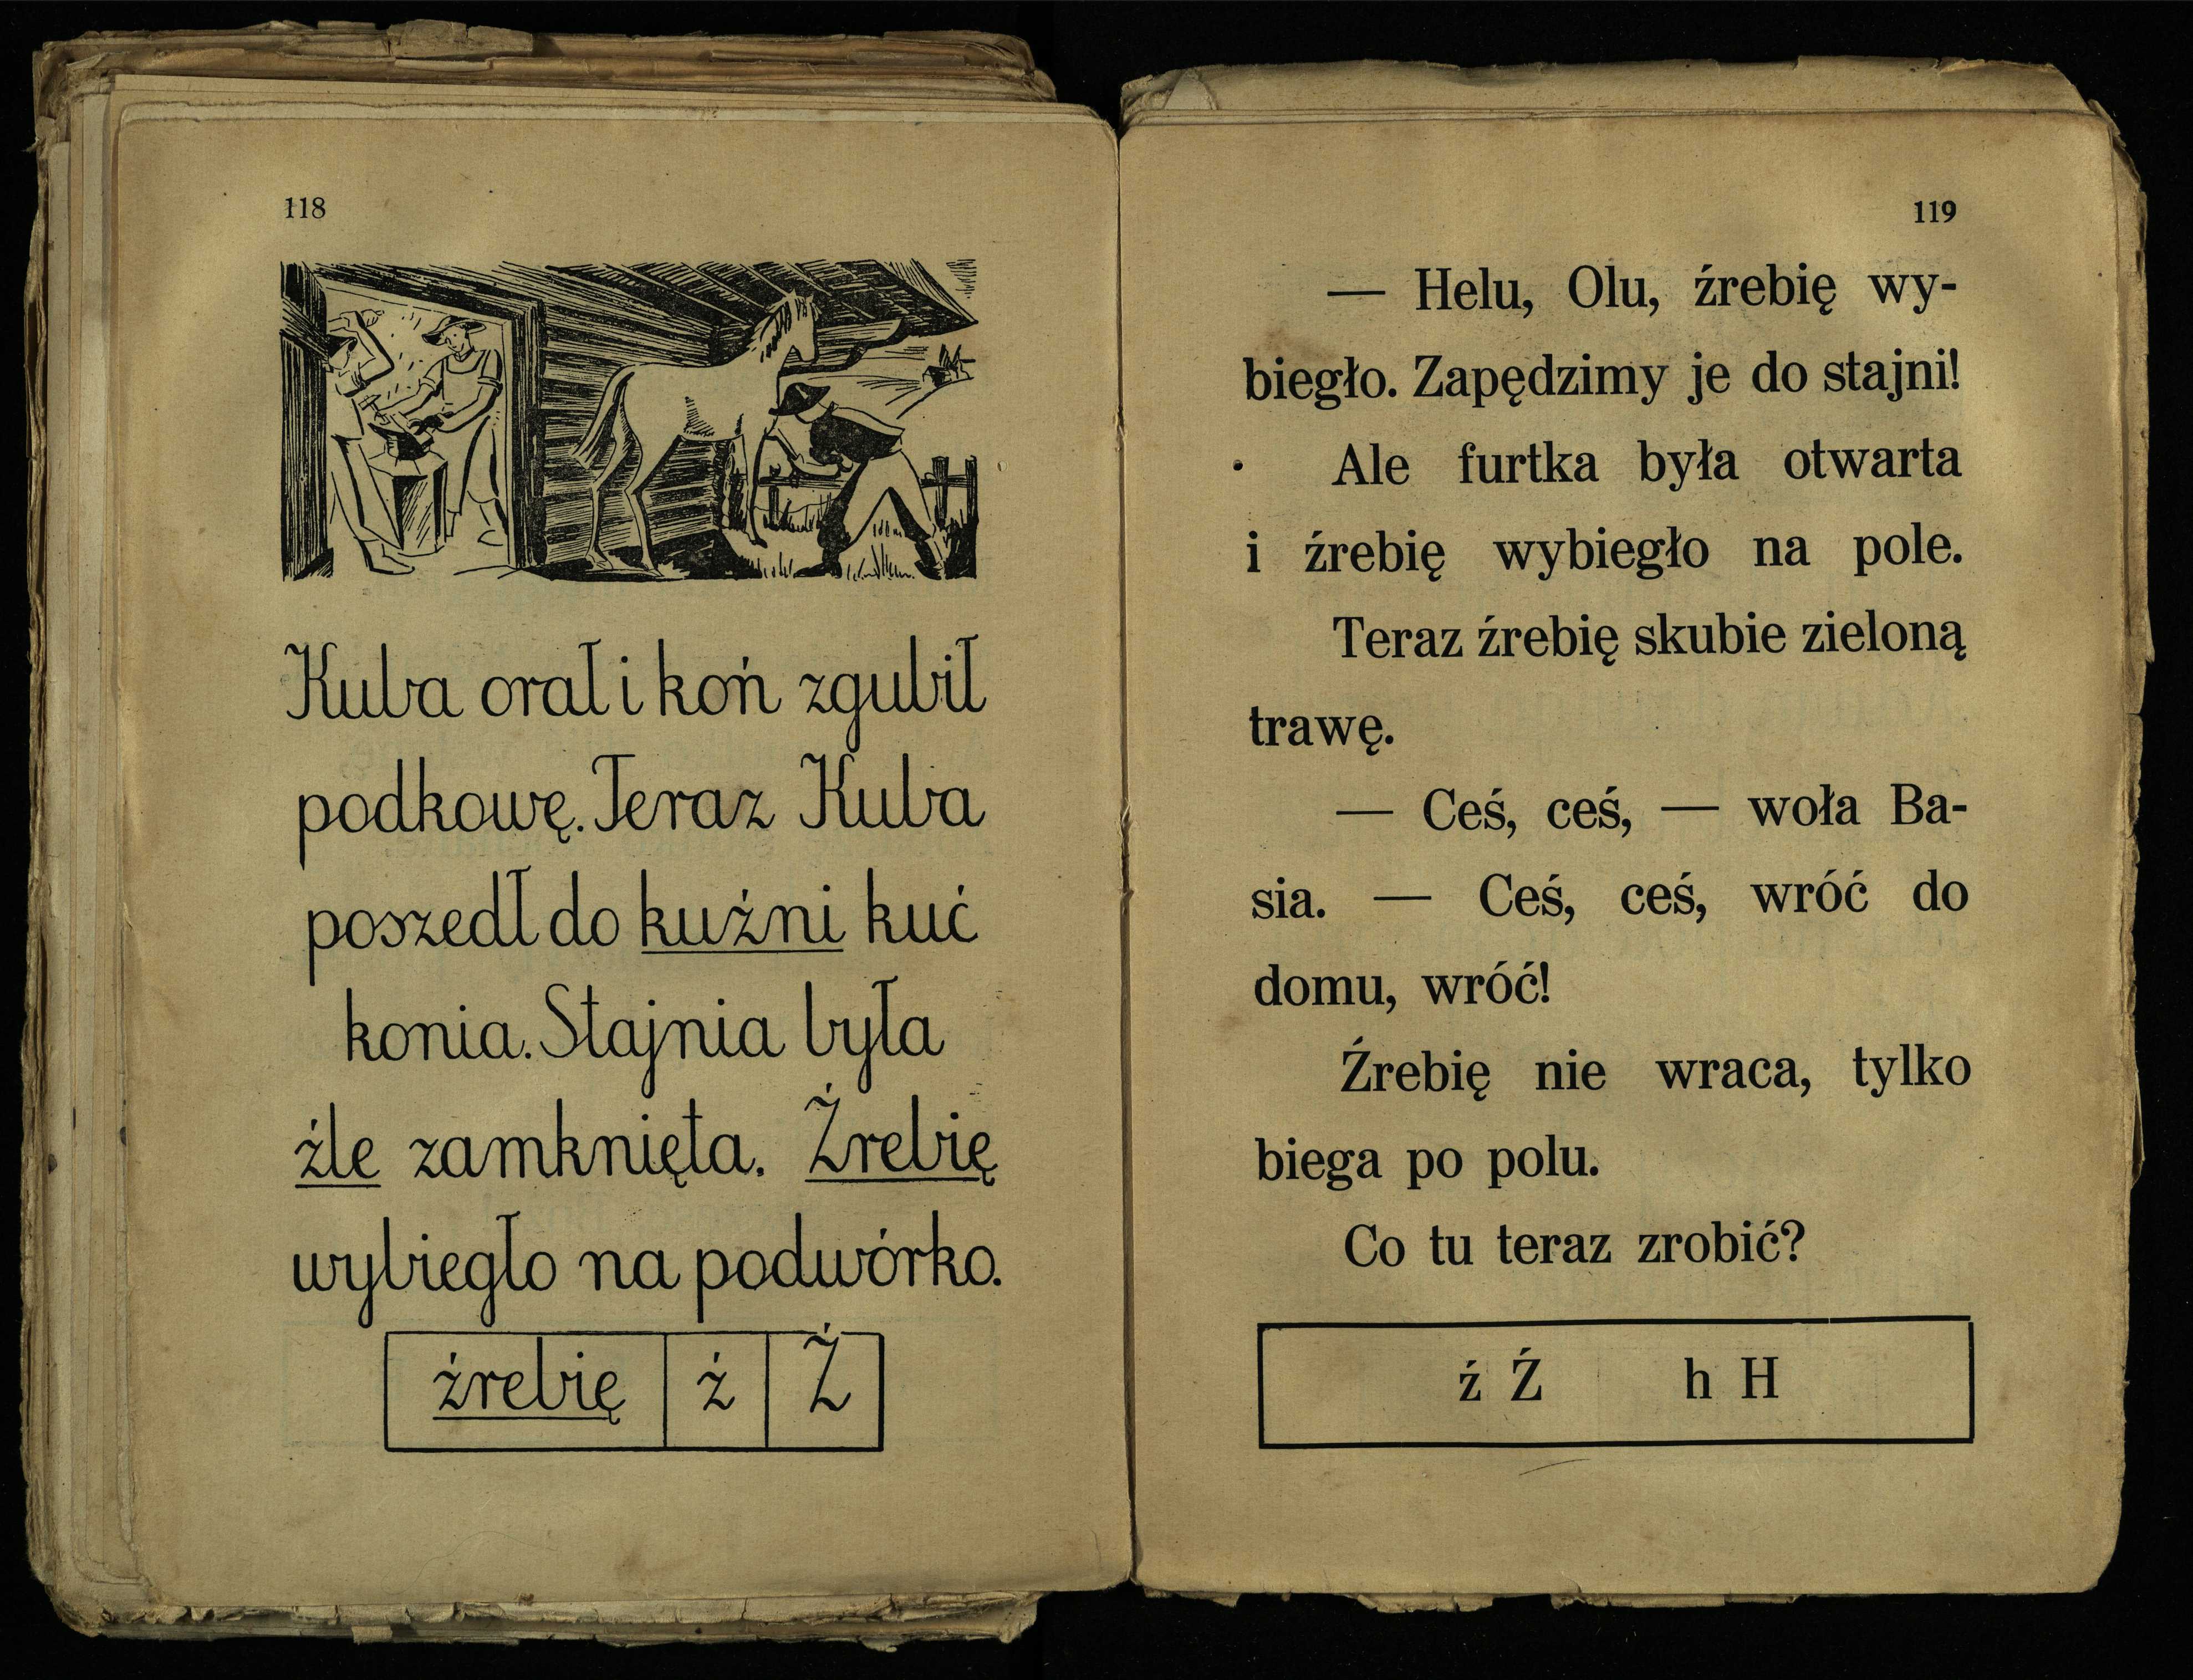 118
Kuba orał i koń zgubił
podkowę. Teraz Kuba
poszedł do kuźni kuć
konia. Stajnia była
źle zamknięta. Źrebię
wybiegło na podwórko.
źrebię ź Ź
119
— Helu, Olu, źrebię wy-
biegło. Zapędzimy je do stajni!
Ale furtka była otwarta
i źrebię wybiegło na pole.
Teraz źrebię skubie zieloną
trawę.
— Ceś, ceś, — woła Ba-
sia. — Ceś, ceś, wróć do
domu, wróć!
Źrebię nie wraca, tylko
biega po polu.
Co tu teraz zrobić?
ź Ź h H